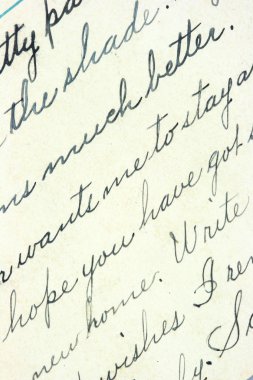 tty pa
the shade.
ns much better.
r wants me to stay a
hope you have got s
new home. Write
wishes I re
ly. S